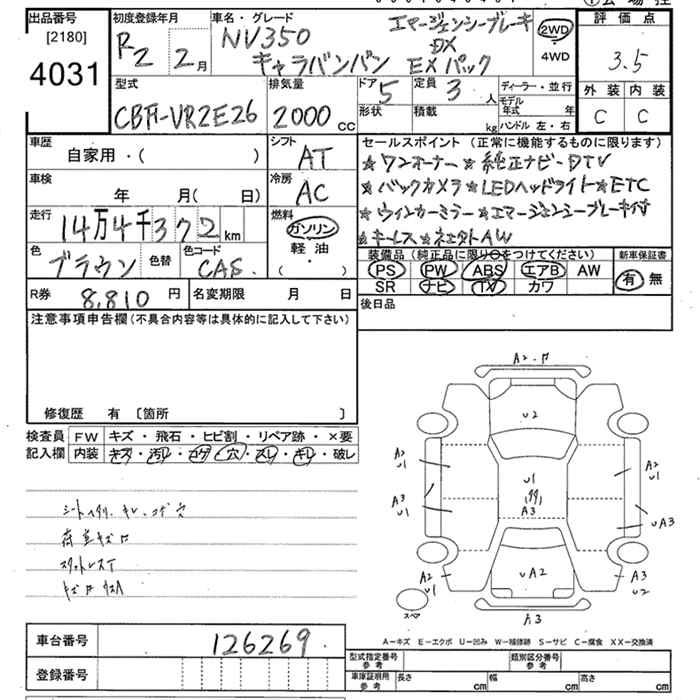 出品番号
[2180]
4031
初度登録年月
R2 2月
車名・グレード
NV350
キャラバンバン
エマージェンシーブレーキ
DX
EXパック
2WD
4WD
評価点
3.5
外装 内装
C C
型式
CBF-VR2E26
排気量
2000 CC
ドア 5
形状
定員 3 人
積載 kg
ディーラー・並行
モデル年式 年
ハンドル 左・右
車歴
自家用・( )
シフト
AT
車検
年 月( 日)
冷房
AC
走行
14万4千372km
燃料
ガソリン
軽油
( ・ )
色
ブラウン
色替
色コード
CAS
R券 8,810 円
名変期限 月 日
セールスポイント (正常に機能するものに限ります)
☆ワンオーナー☆純正ナビ・DTV
☆バックカメラ☆LEDヘッドライト☆ETC
☆ウインカーミラー☆エマージェンシーブレーキ付
☆キーレス☆ AW
装備品 (純正品に限り○をつけてください)
PS PW ABS エアB AW
SR ナビ TV カワ
新車保証書
有 無
後日品
注意事項申告欄(不具合内容等は具体的に記入して下さい)
修復歴 有 〔箇所 〕
検査員記入欄
FW キズ・飛石・ヒビ割・リペア跡・×要
内装 キズ・汚レ・コゲ・穴・スレ・キレ・破レ
荷室キズ
スタットレスT
A2
U2
A2
U1
A3
U1
U1
A3
A2
U1
UA3
A2
U1
UA2
A3
U2
スペア
A3
A-キズ E-エクボ U-凹み W-補修跡 S-サビ C-腐食 XX-交換済
車台番号 126269
登録番号
型式指定番号 参考
類別区分番号 参考
車庫証明用 参考
長さ cm 幅 cm 高さ cm